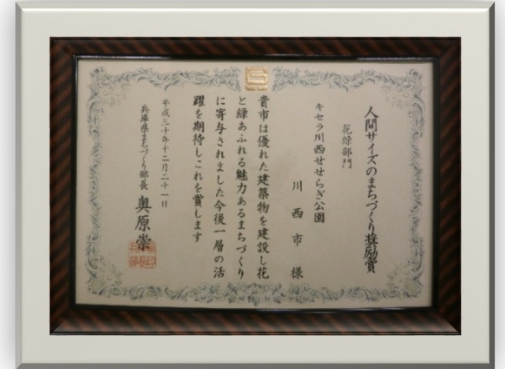 人間サイズのまちづくり奨励賞
花緑部門
キセラ川西せせらぎ公園
川西市 様
貴市は優れた建築物を建設し花
と緑あふれる魅力あるまちづくり
に寄与されました今後一層の活
躍を期待しこれを賞します
平成三十年十二月二十一日
兵庫県まちづくり部長 奥原崇